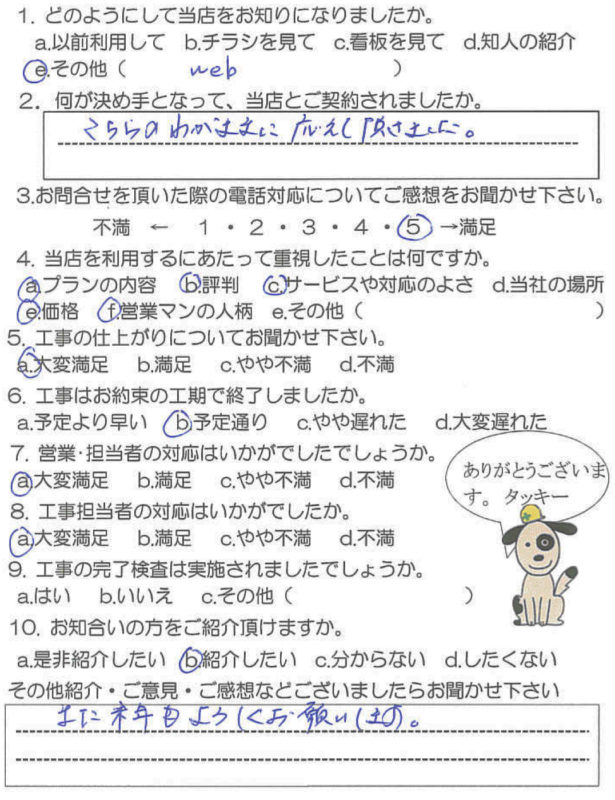 1. どのようにして当店をお知りになりましたか。
a.以前利用して b.チラシを見て c.看板を見て d.知人の紹介
e.その他( web )
2. 何が決め手となって、当店とご契約されましたか。
こちらのわがままに応えて頂きました。
3.お問合せを頂いた際の電話対応についてご感想をお聞かせ下さい。
不満 ← 1・2・3・4・5 →満足
4. 当店を利用するにあたって重視したことは何ですか。
a.プランの内容 b.評判 c.サービスや対応のよさ d.当社の場所
e.価格 f.営業マンの人柄 e.その他( )
5. 工事の仕上がりについてお聞かせ下さい。
a.大変満足 b.満足 c.やや不満 d.不満
6. 工事はお約束の工期で終了しましたか。
a.予定より早い b.予定通り c.やや遅れた d.大変遅れた
7. 営業・担当者の対応はいかがでしたでしょうか。
a.大変満足 b.満足 c.やや不満 d.不満
ありがとうございま
す。 タッキー
8. 工事担当者の対応はいかがでしたか。
a.大変満足 b.満足 c.やや不満 d.不満
9. 工事の完了検査は実施されましたでしょうか。
a.はい b.いいえ c.その他( )
10. お知合いの方をご紹介頂けますか。
a.是非紹介したい b.紹介したい c.分からない d.したくない
その他紹介・ご意見・ご感想などございましたらお聞かせ下さい
また来年もよろしくお願いします。